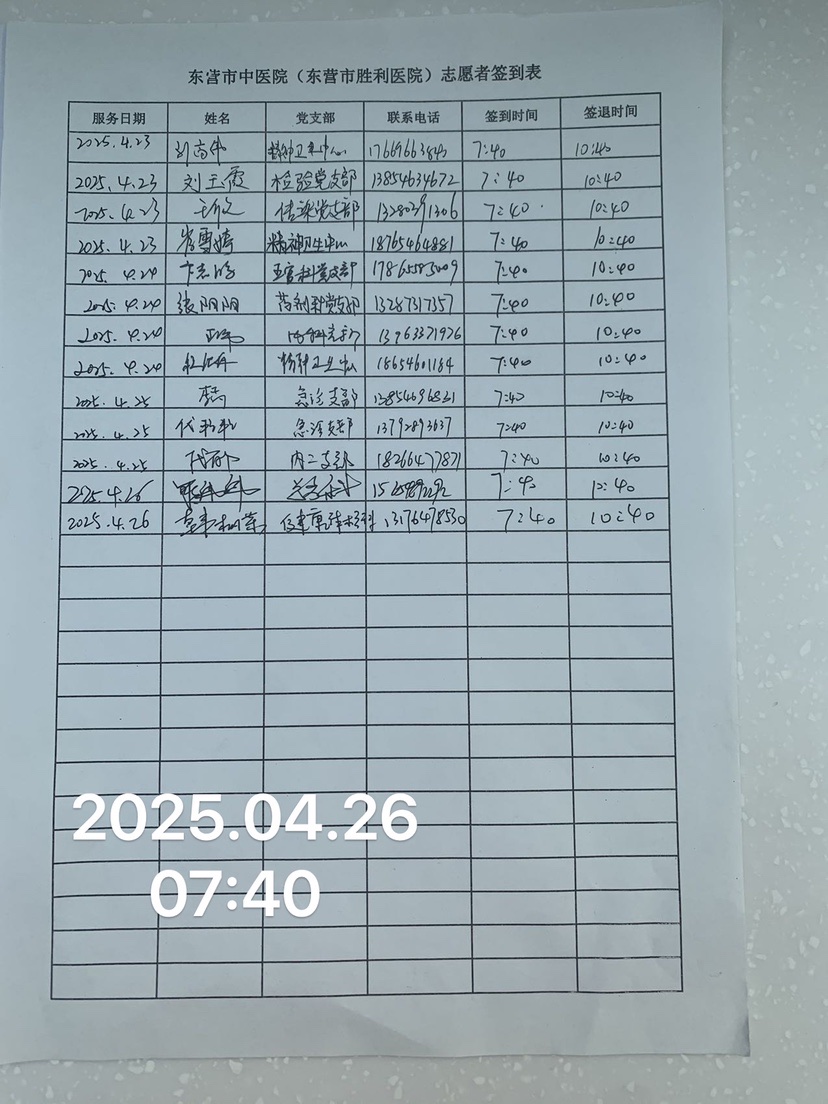 东营市中医院（东营市胜利医院）志愿者签到表
服务日期 姓名 党支部 联系电话 签到时间 签退时间
2025.4.23 刘高伟 精神卫生中心 7:40 10:40
2025.4.23 刘玉霞 检验党支部 13854634672 7:40 10:40
2025.4.23 传染党支部 13280391306 7:40 10:40
2025.4.23 崔雪婷 精神卫生中心 18765464881 7:40 10:40
2025.4.24 五官科党支部 17865585009 7:40 10:40
2025.4.24 张阳阳 药剂科党支部 13287317357 7:40 10:40
2025.4.24 13963371926 7:40 10:40
2025.4.24 精神卫生中心 18654601184 7:40 10:40
2025.4.25 急诊支部 13854696831 7:40 10:40
2025.4.25 急诊支部 13792893637 7:40 10:40
2025.4.25 内二支部 18266477871 7:40 10:40
2025.4.26 7:40 10:40
2025.4.26 13176478530 7:40 10:40
2025.04.26
07:40